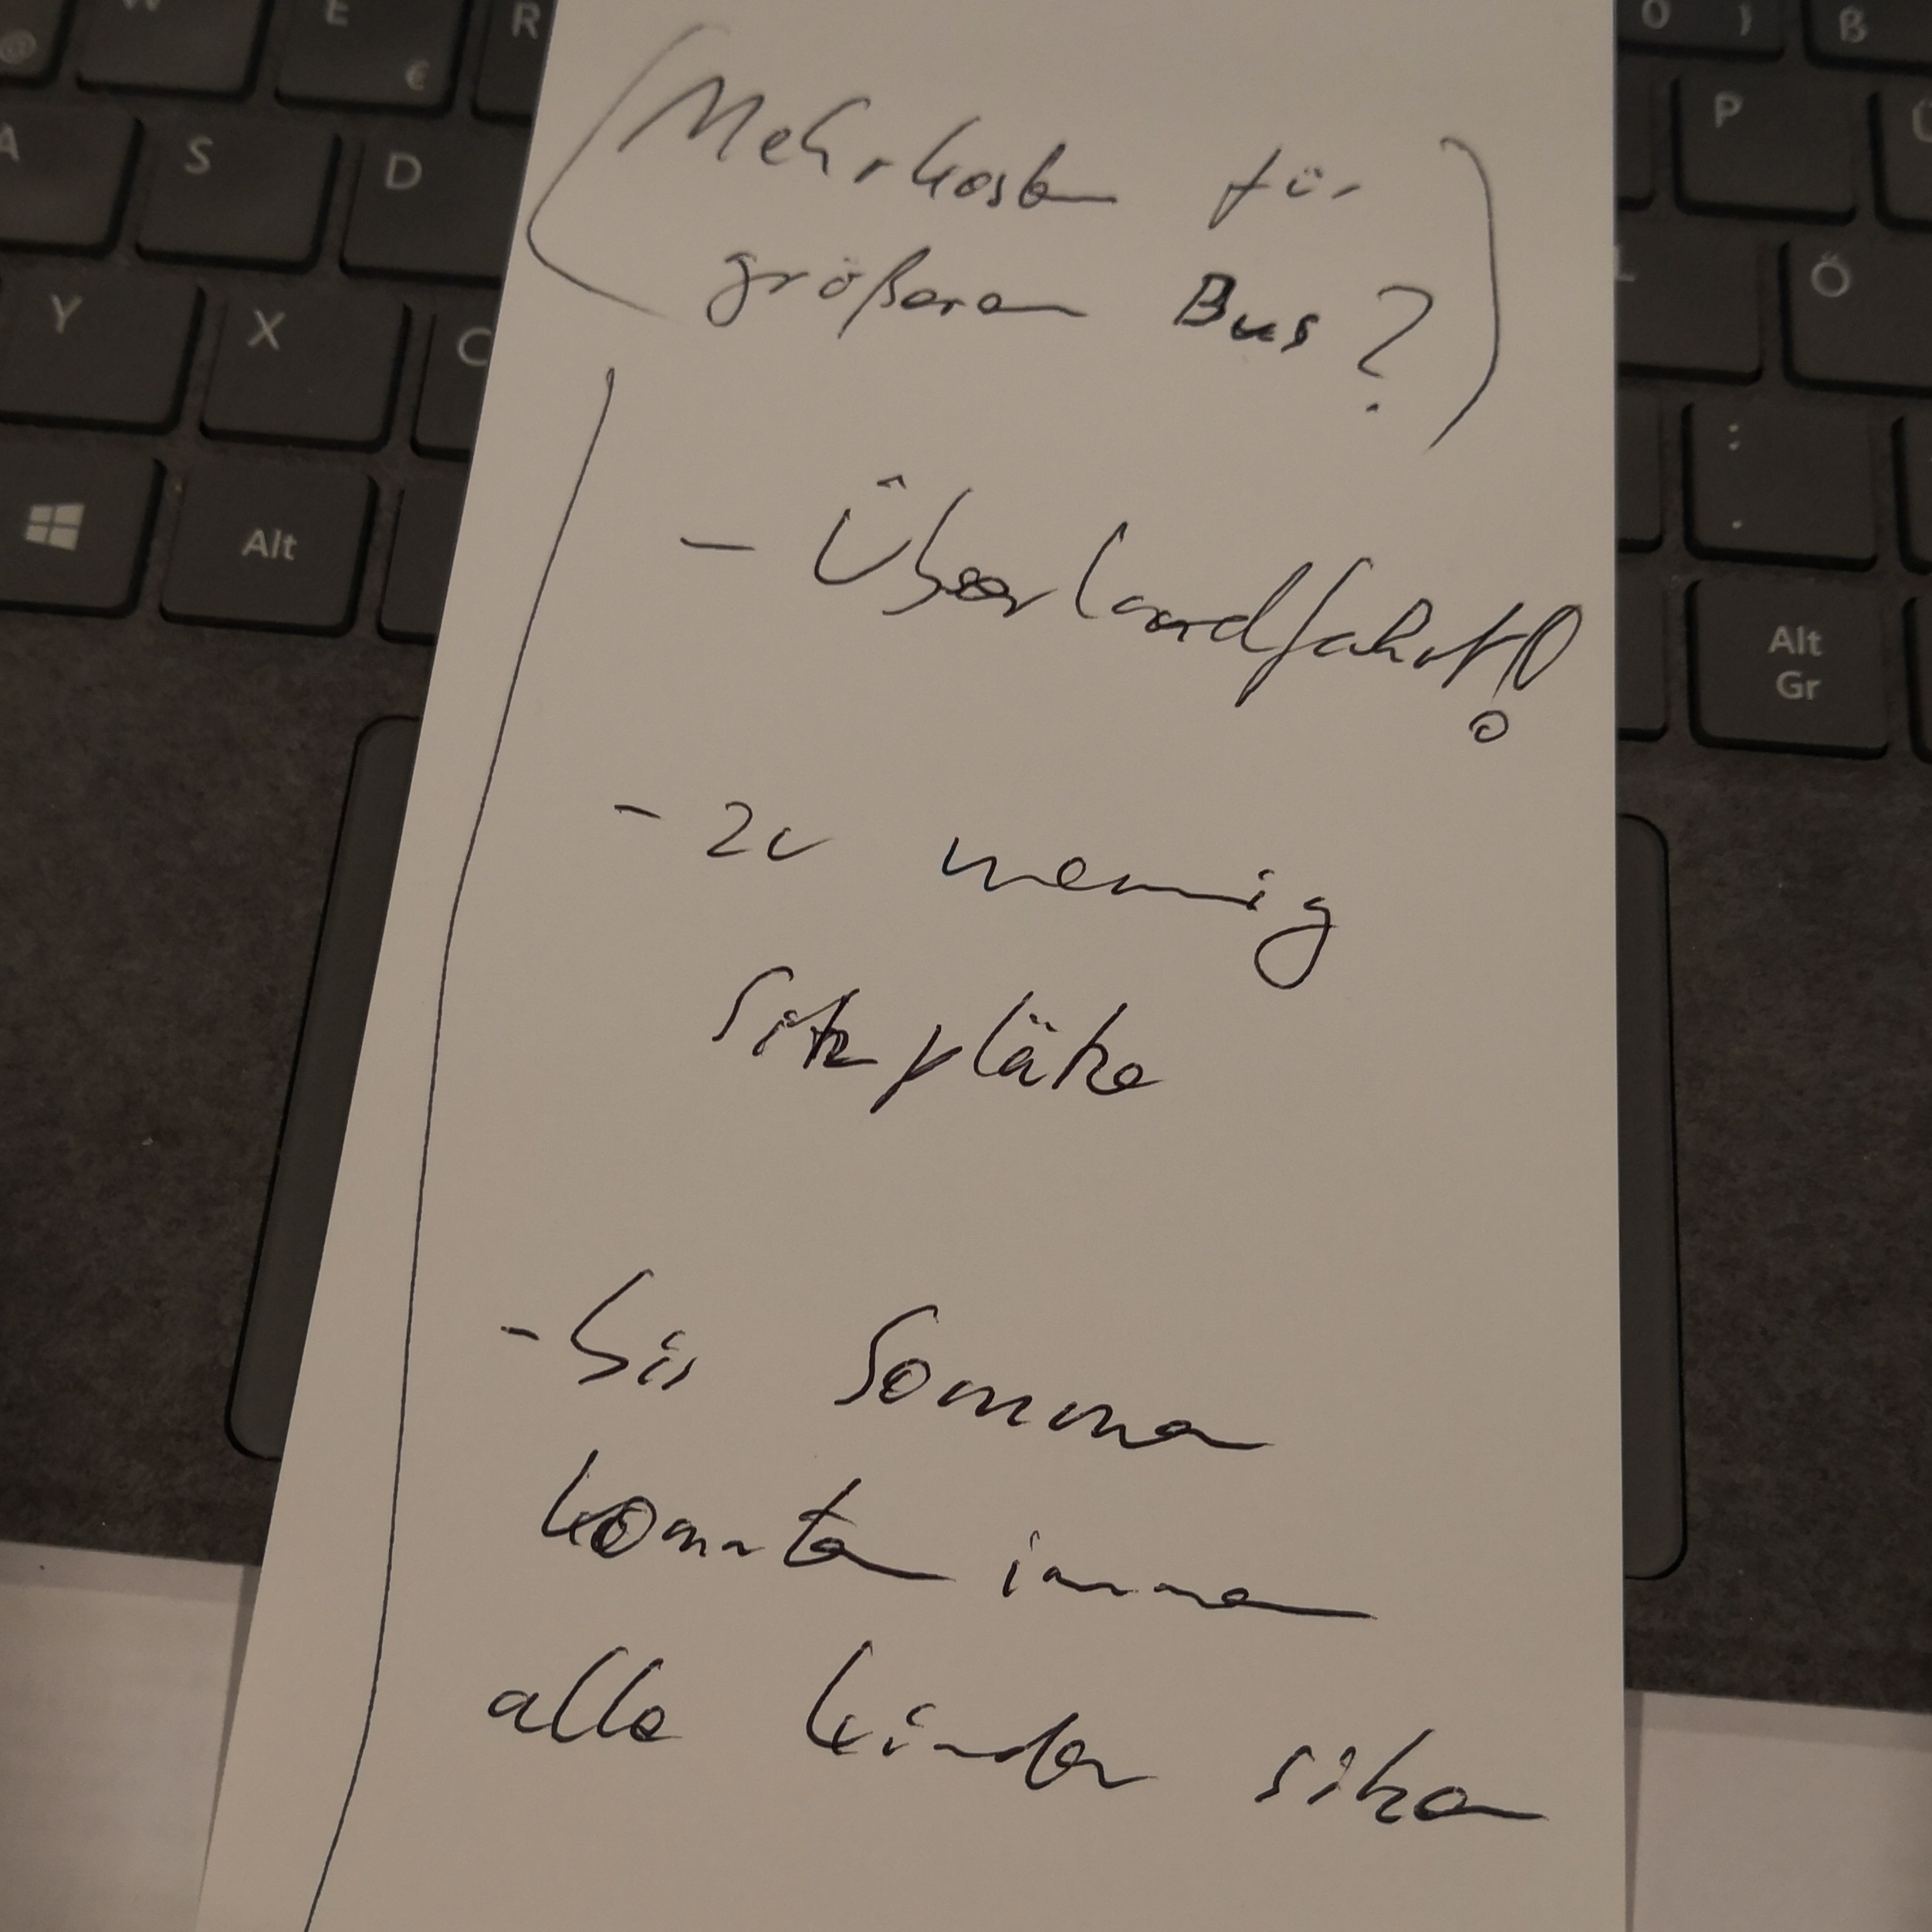 W E R O } ß
@ €
A S D P Ü
Y X C L Ö
: .
Alt Alt Gr
(Mehrkosten für
größeren Bus?)
- Überlandfahrt!
- zu wenig
Sitzplätze
- bis Sommer
konnten immer
alle Kinder sitzen